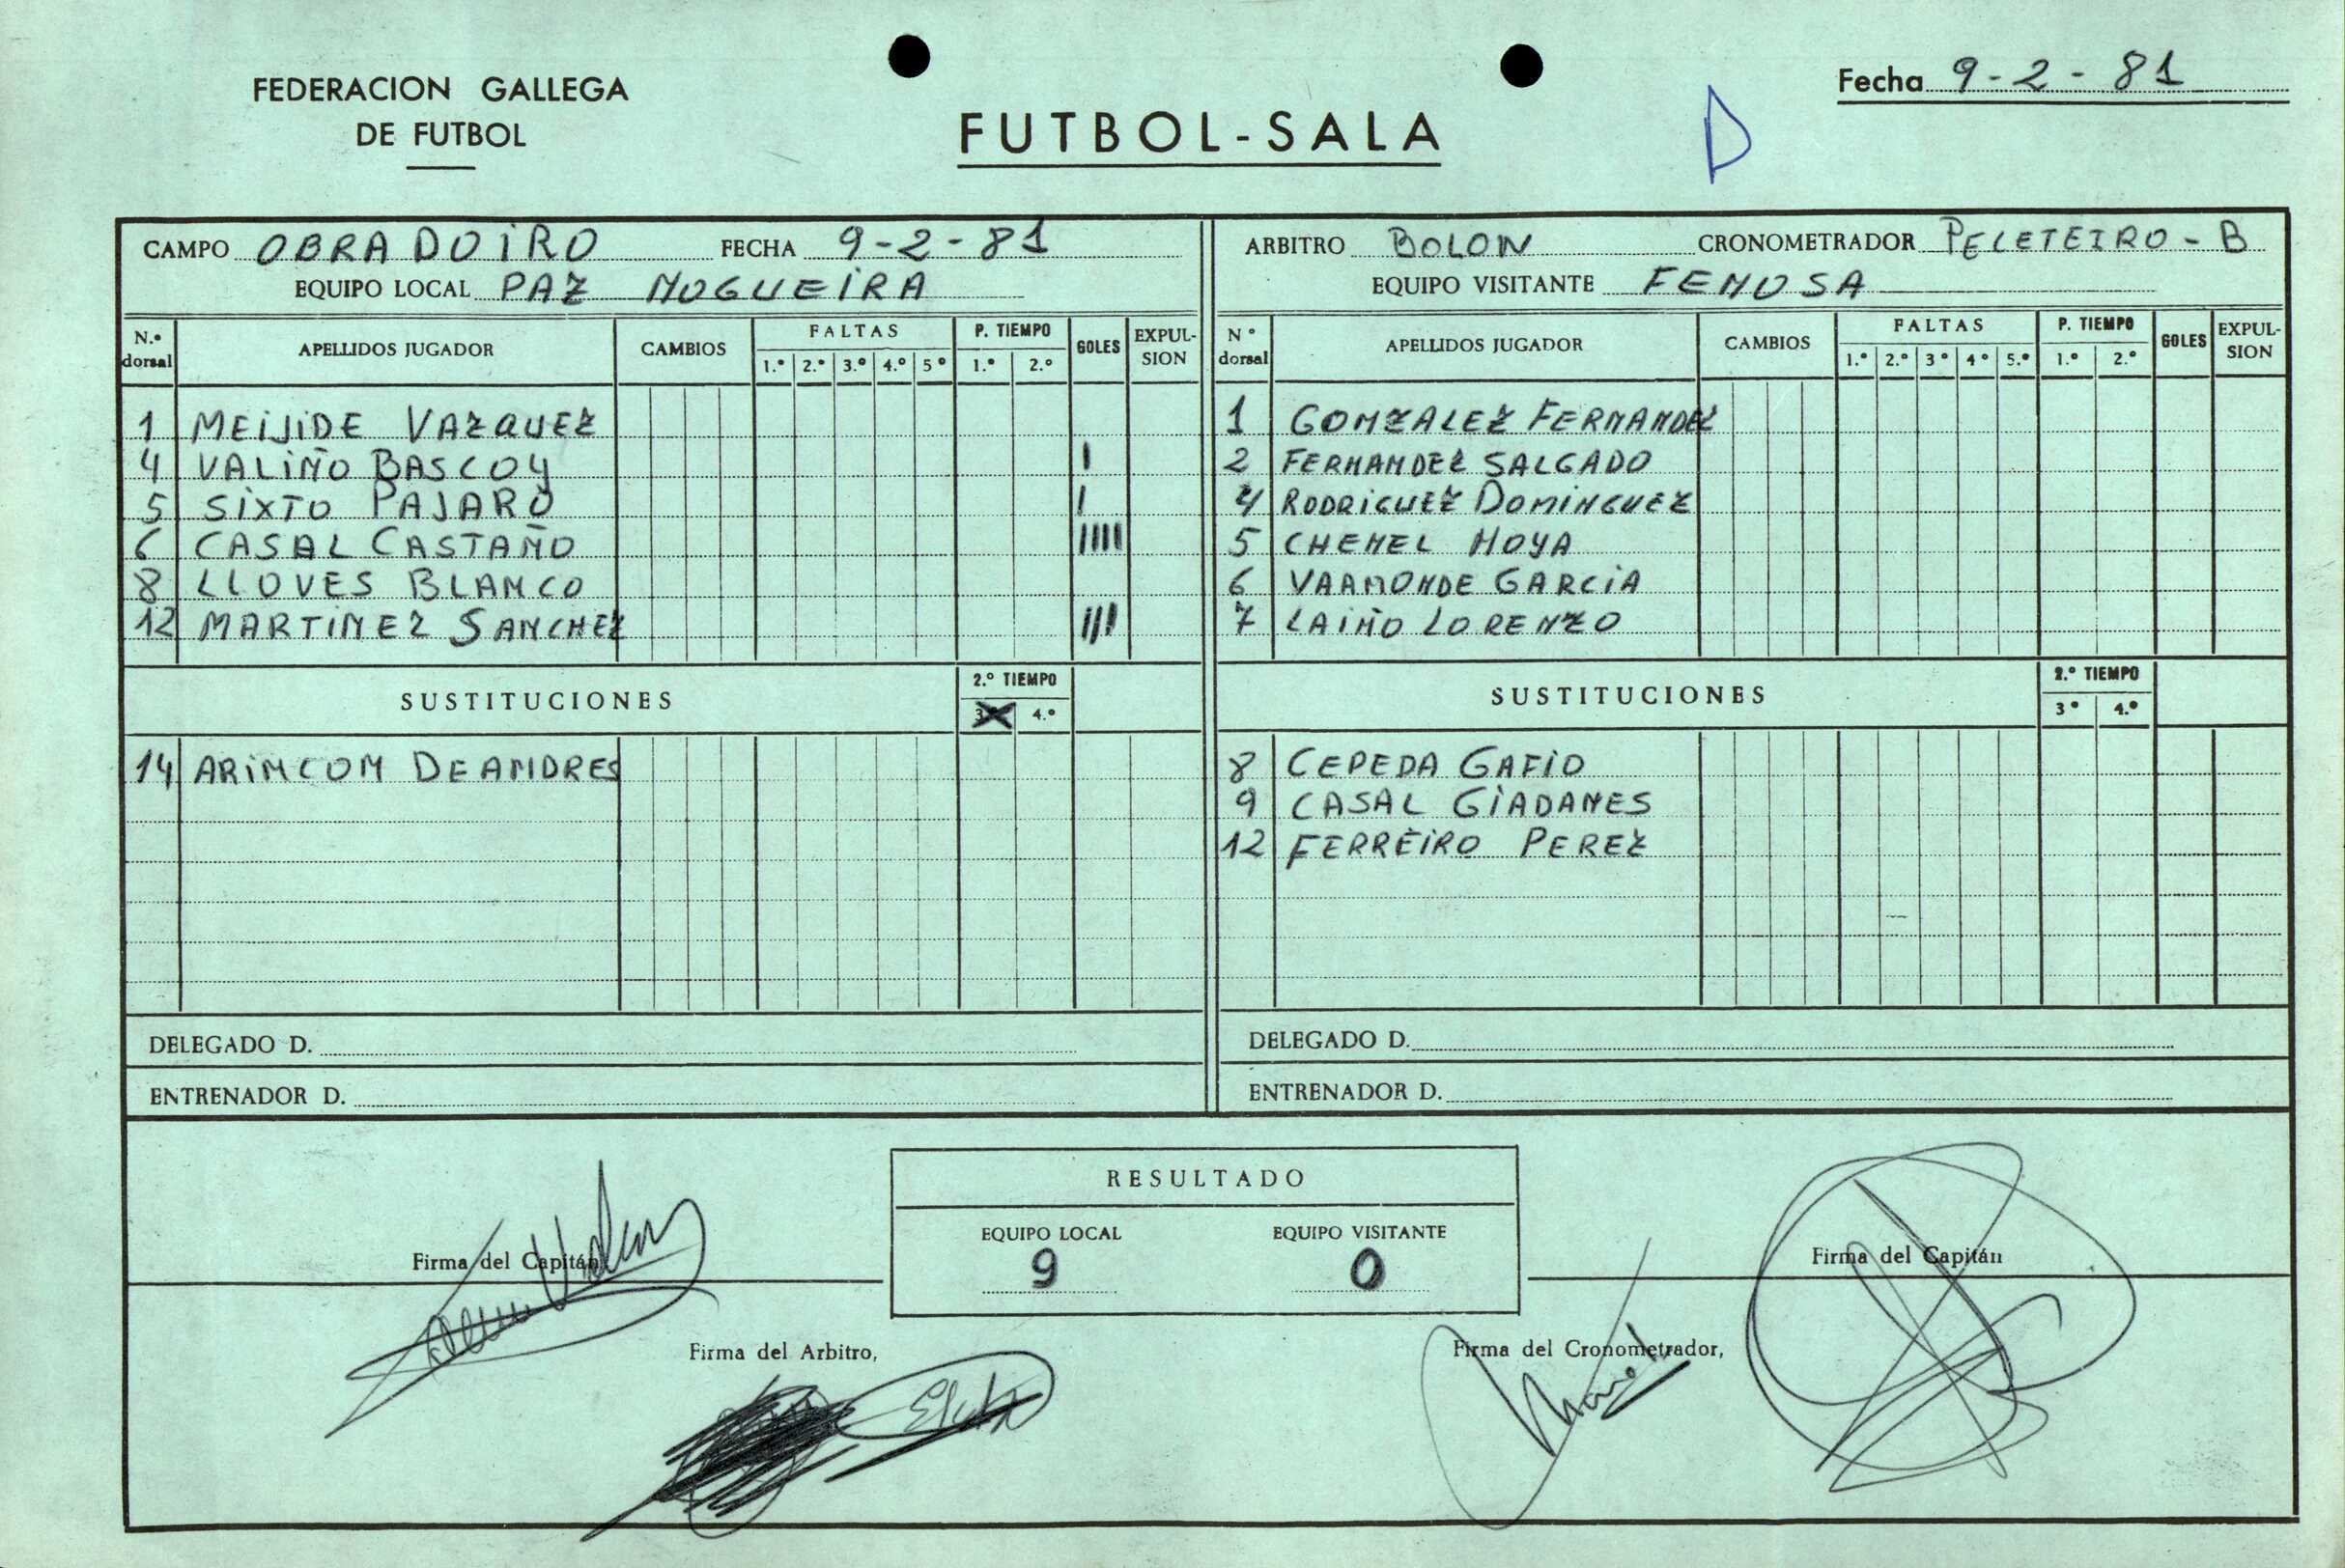 FEDERACION GALLEGA
DE FUTBOL
FUTBOL-SALA
D
Fecha 9-2-81
CAMPO OBRADOIRO FECHA 9-2-81
EQUIPO LOCAL PAZ NOGUEIRA
N.º dorsal APELLIDOS JUGADOR CAMBIOS FALTAS 1.º 2.º 3.º 4.º 5º P. TIEMPO 1.º 2.º GOLES EXPUL-SION
1 MEIJIDE VAZQUEZ
4 VALIÑO BASCOY I
5 SIXTO PAJARO I
6 CASAL CASTAÑO IIII
8 LLOVES BLANCO
12 MARTINEZ SANCHEZ III
SUSTITUCIONES 2.º TIEMPO 4.º
14 ARINCON DEANDRES
DELEGADO D.
ENTRENADOR D.
ARBITRO BOLON CRONOMETRADOR PELETEIRO-B
EQUIPO VISITANTE FENOSA
Nº dorsal APELLIDOS JUGADOR CAMBIOS FALTAS 1.º 2.º 3º 4º 5.º P. TIEMPO 1.º 2.º GOLES EXPUL-SION
1 GONZALEZ FERNANDEZ
2 FERNANDEZ SALGADO
4 RODRIGUEZ DOMINGUEZ
5 CHENEL MOYA
6 VAAMONDE GARCIA
7 LAIÑO LORENZO
SUSTITUCIONES 2.º TIEMPO 3º 4.º
8 CEPEDA GAFIO
9 CASAL GIADANES
12 FERREIRO PEREZ
DELEGADO D.
ENTRENADOR D.
RESULTADO
EQUIPO LOCAL EQUIPO VISITANTE
9 0
Firma del Capitán
Firma del Capitán
Firma del Arbitro,
Firma del Cronometrador,